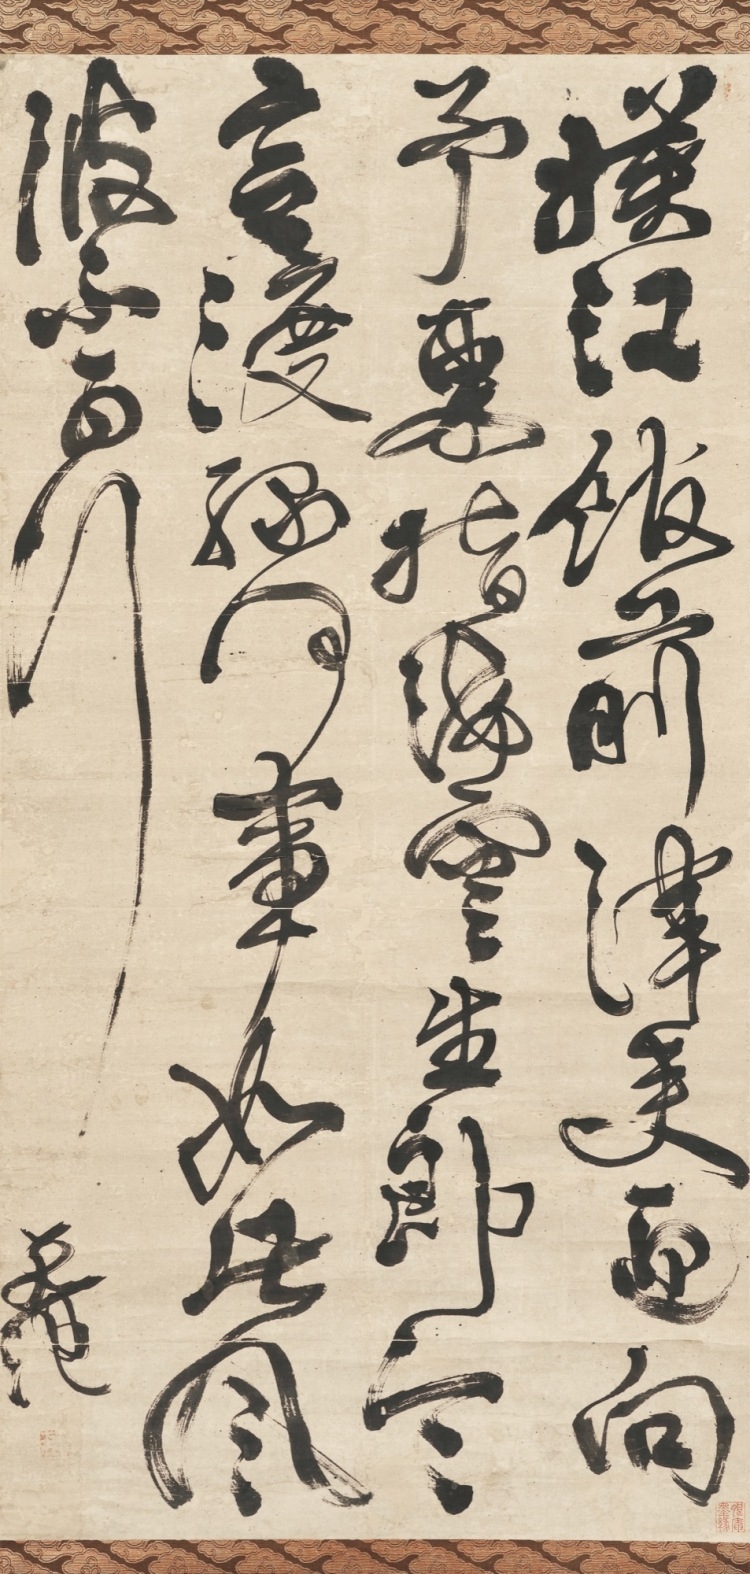 橫江館前津吏迎向
予東指海雲生郎今
言渡緣何事如此風
波不可行